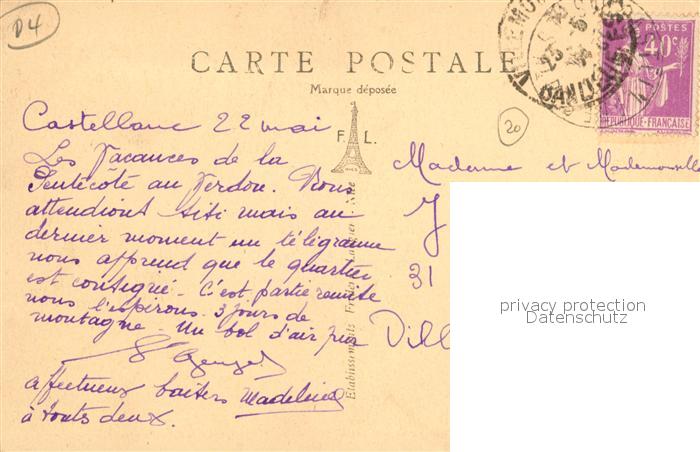 D4
CARTE POSTALE
Marque déposée
F. L.
POSTES
40c
REPUBLIQUE-FRANÇAISE
20
Castellane 22 mai
Les Vacances de la
Pentecôte au Verdon. Nous
attendions Sisi mais au
dernier moment un télégramme
nous apprend que le quartier
est consigné - C'est partie remise
nous l'espérons. 3 jours de
montagne - Un bol d'air pur
affectueux baisers Madeleine
à toutes deux.
Madame et Mademoiselle
J
31
Vill
Etablissements
privacy protection
Datenschutz